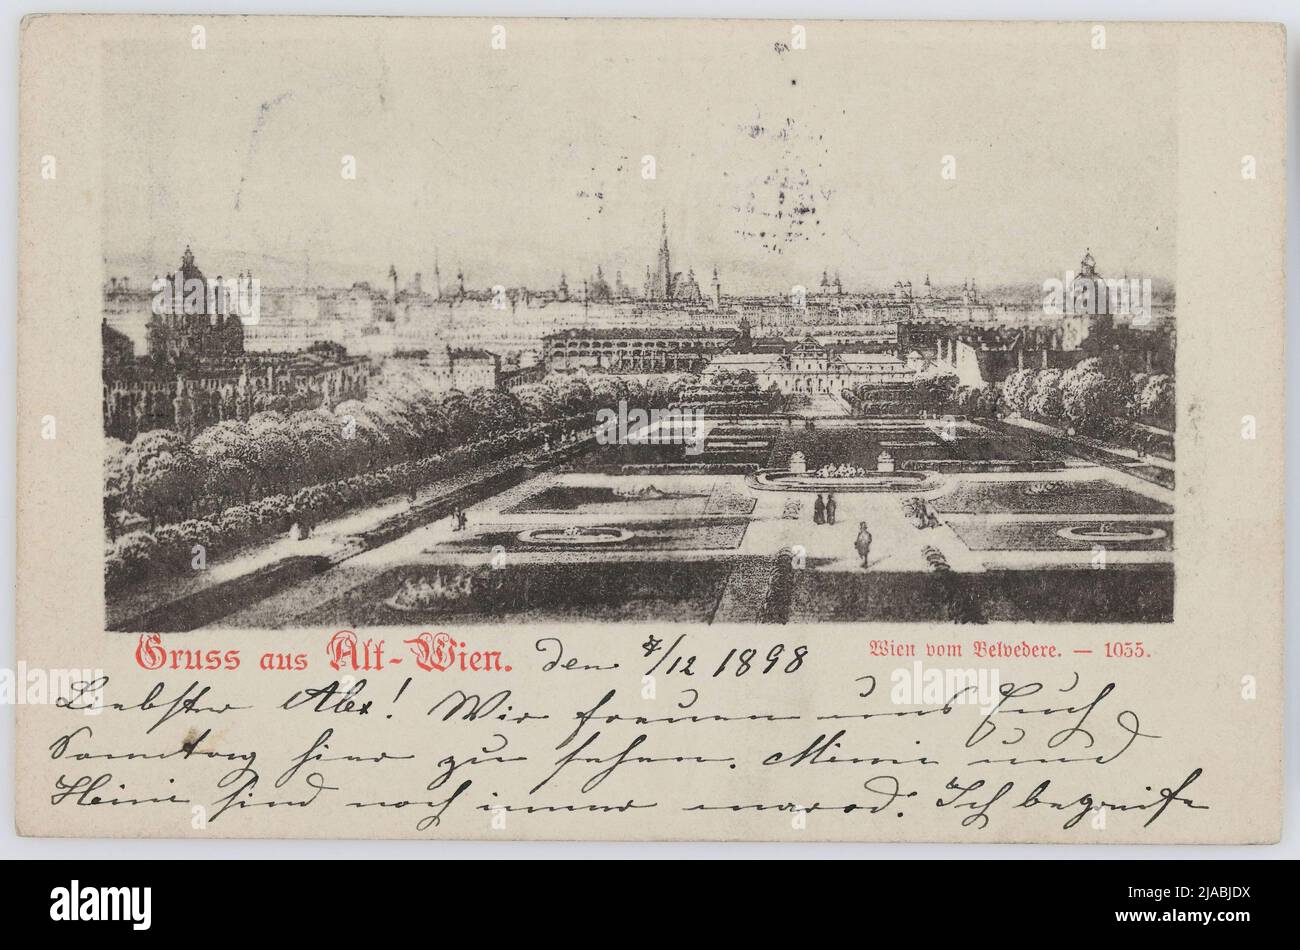 Gruss aus Alt-Wien. den 7/12 1898
Wien vom Belvedere. — 1055.
Liebster Alex! Wir freuen uns Euch
Sonntag hier zu sehen. Mimi und
Heini sind noch immer marod. Ich begreife
a alamy
alamy
Image ID: 2JABJDX
www.alamy.com